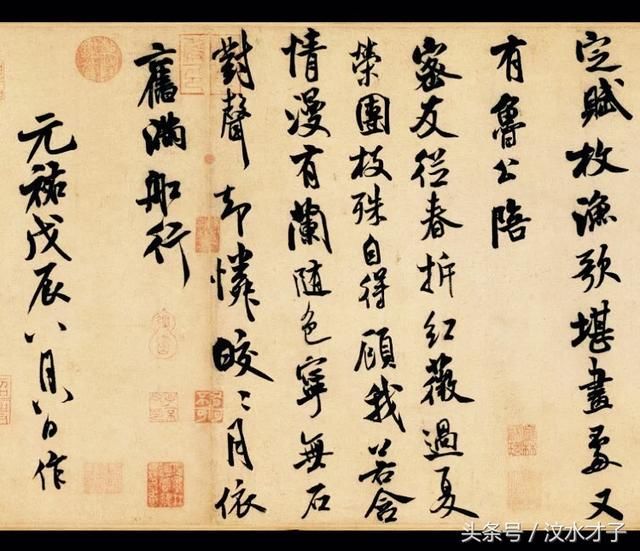 定賦枚漁歌堪畫處又
有魯公陪
密友從春拆紅薇過夏
榮團枝殊自得顧我若含
情漫有蘭隨色寧無石
對聲却憐皎〻月依
舊滿船行
元祐戊辰八月八日作
头条号／汶水才子